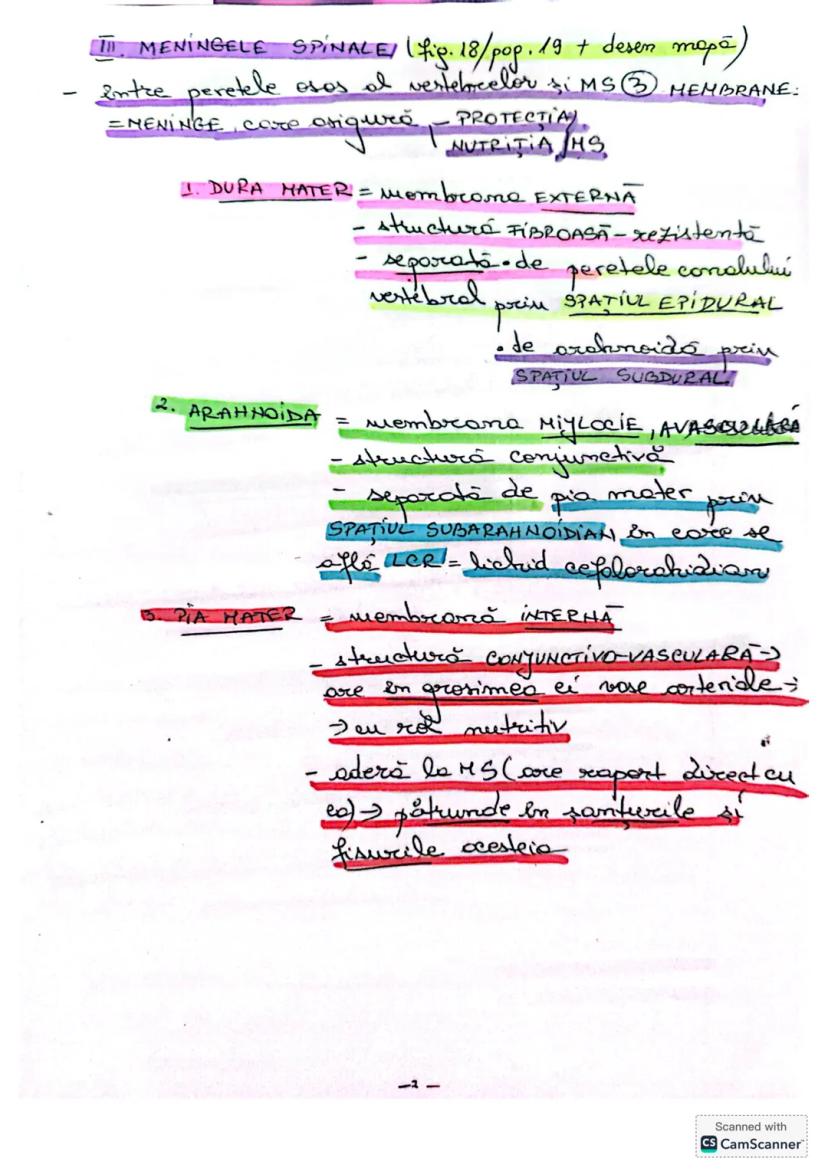 III. MENINGELE SPINALE (fig. 18/pag. 19 + desen mapă)
- între peretele osos al vertebrelor și MS ③ MEMBRANE:
= MENINGE, care asigură - PROTECȚIA
NUTRIȚIA MS
1. DURA MATER = membrana EXTERNĂ
- structură FIBROASĂ - rezistentă
- separată • de peretele canalului
vertebral prin SPAȚIUL EPIDURAL
• de arahnoidă prin
SPAȚIUL SUBDURAL
2. ARAHNOIDA = membrana MIJLOCIE, AVASCULARĂ
- structură conjunctivă
- separată de pia mater prin
SPAȚIUL SUBARAHNOIDIAN, în care se
află LCR = lichid cefalorahidian
3. PIA MATER = membrană INTERNĂ
- structură CONJUNCTIVO-VASCULARĂ →
are în grosimea ei vase arteriale →
→ cu rol nutritiv
- aderă la MS (are raport direct cu
ea) → pătrunde în șanțurile și
fisurile acesteia
- 2 -
Scanned with
CS CamScanner